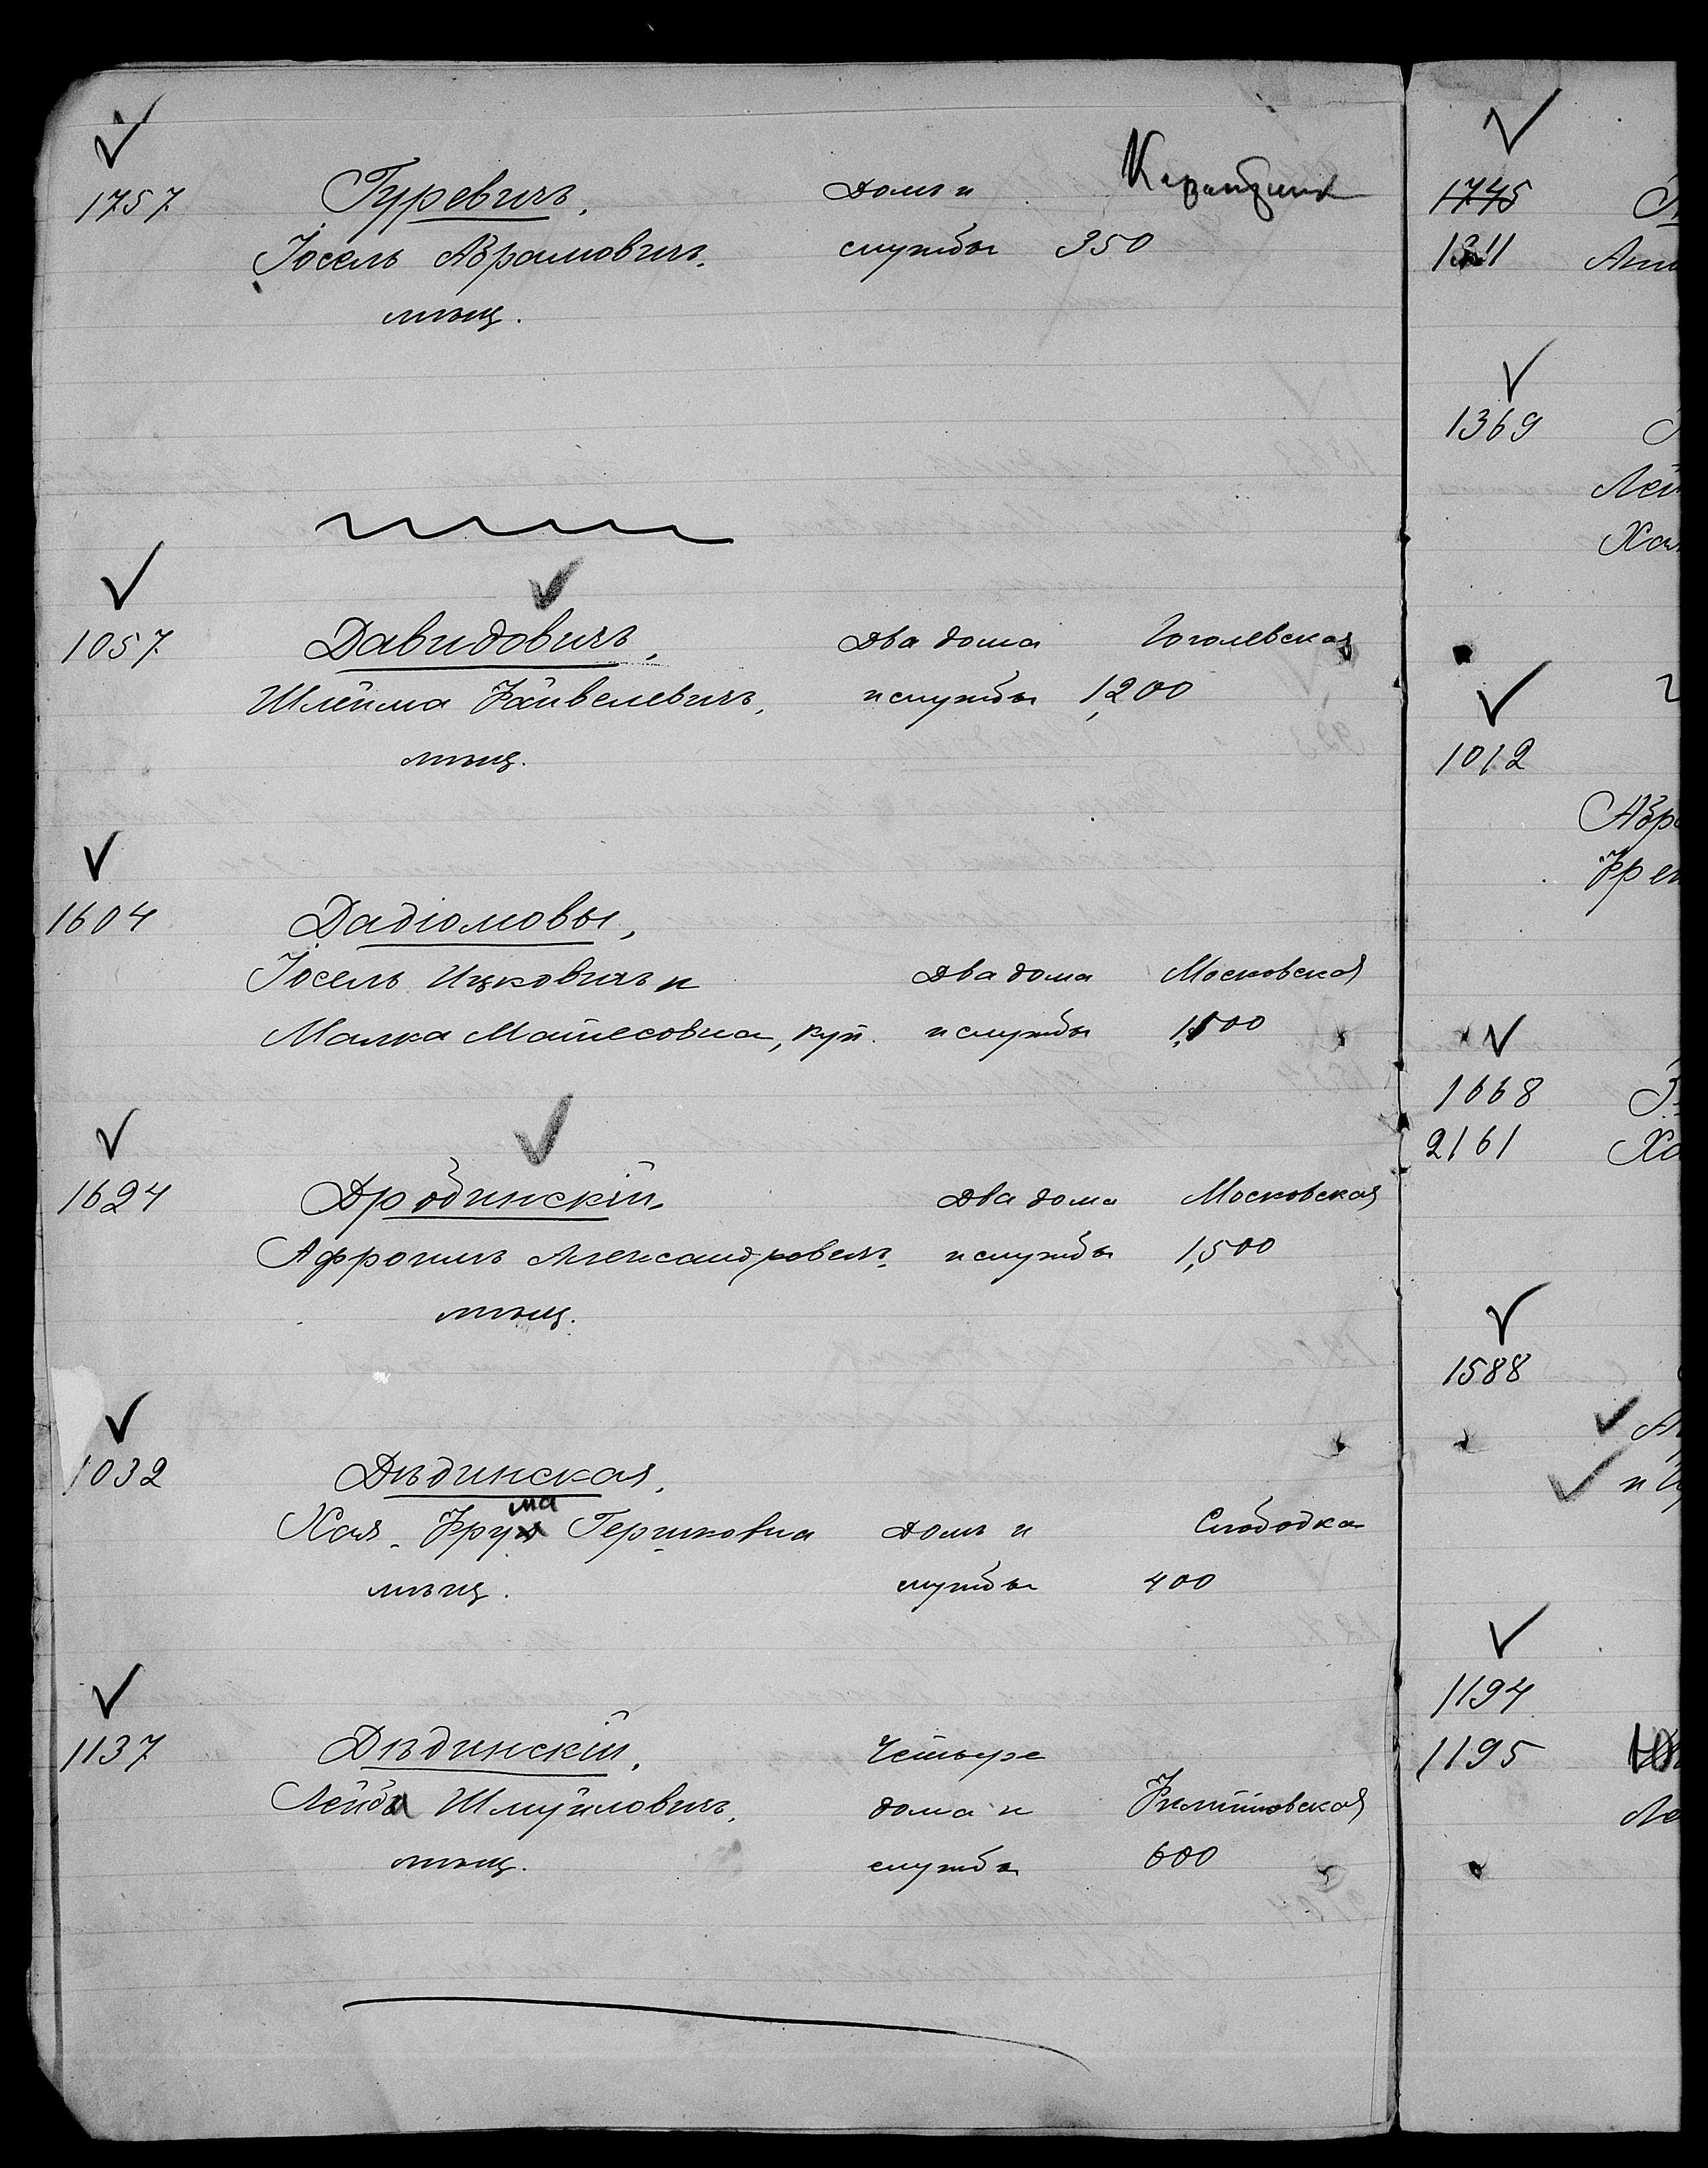 1757 Гуревичъ, Домъ и
Іосель Абрамовичъ. службы 350
мѣщ.
1057 Давидовичъ, Два дома Гоголевская
Шлейма Файвелевичъ, и службы 1,200
мѣщ.
1604 Дадіомовы,
Іосель Ицковичъ и Два дома Московская
Малка Матесовна, куп. и службы 1,500
1624 Дробинскій, Два дома Московская
Афроимъ Александровичъ. и службы 1,500
мѣщ.
1032 Дѣдинская,
Хая-Фрума Гершковна Домъ и Слободка
мѣщ. службы 400
1137 Дѣдинскій, Четыре
Лейба Шмуйловичъ, дома и
мѣщ. службы 600
1745
1311
1369
Лей
Хая
1012
Абра
1668
2161 Ха
1588
1194
1195
Ле